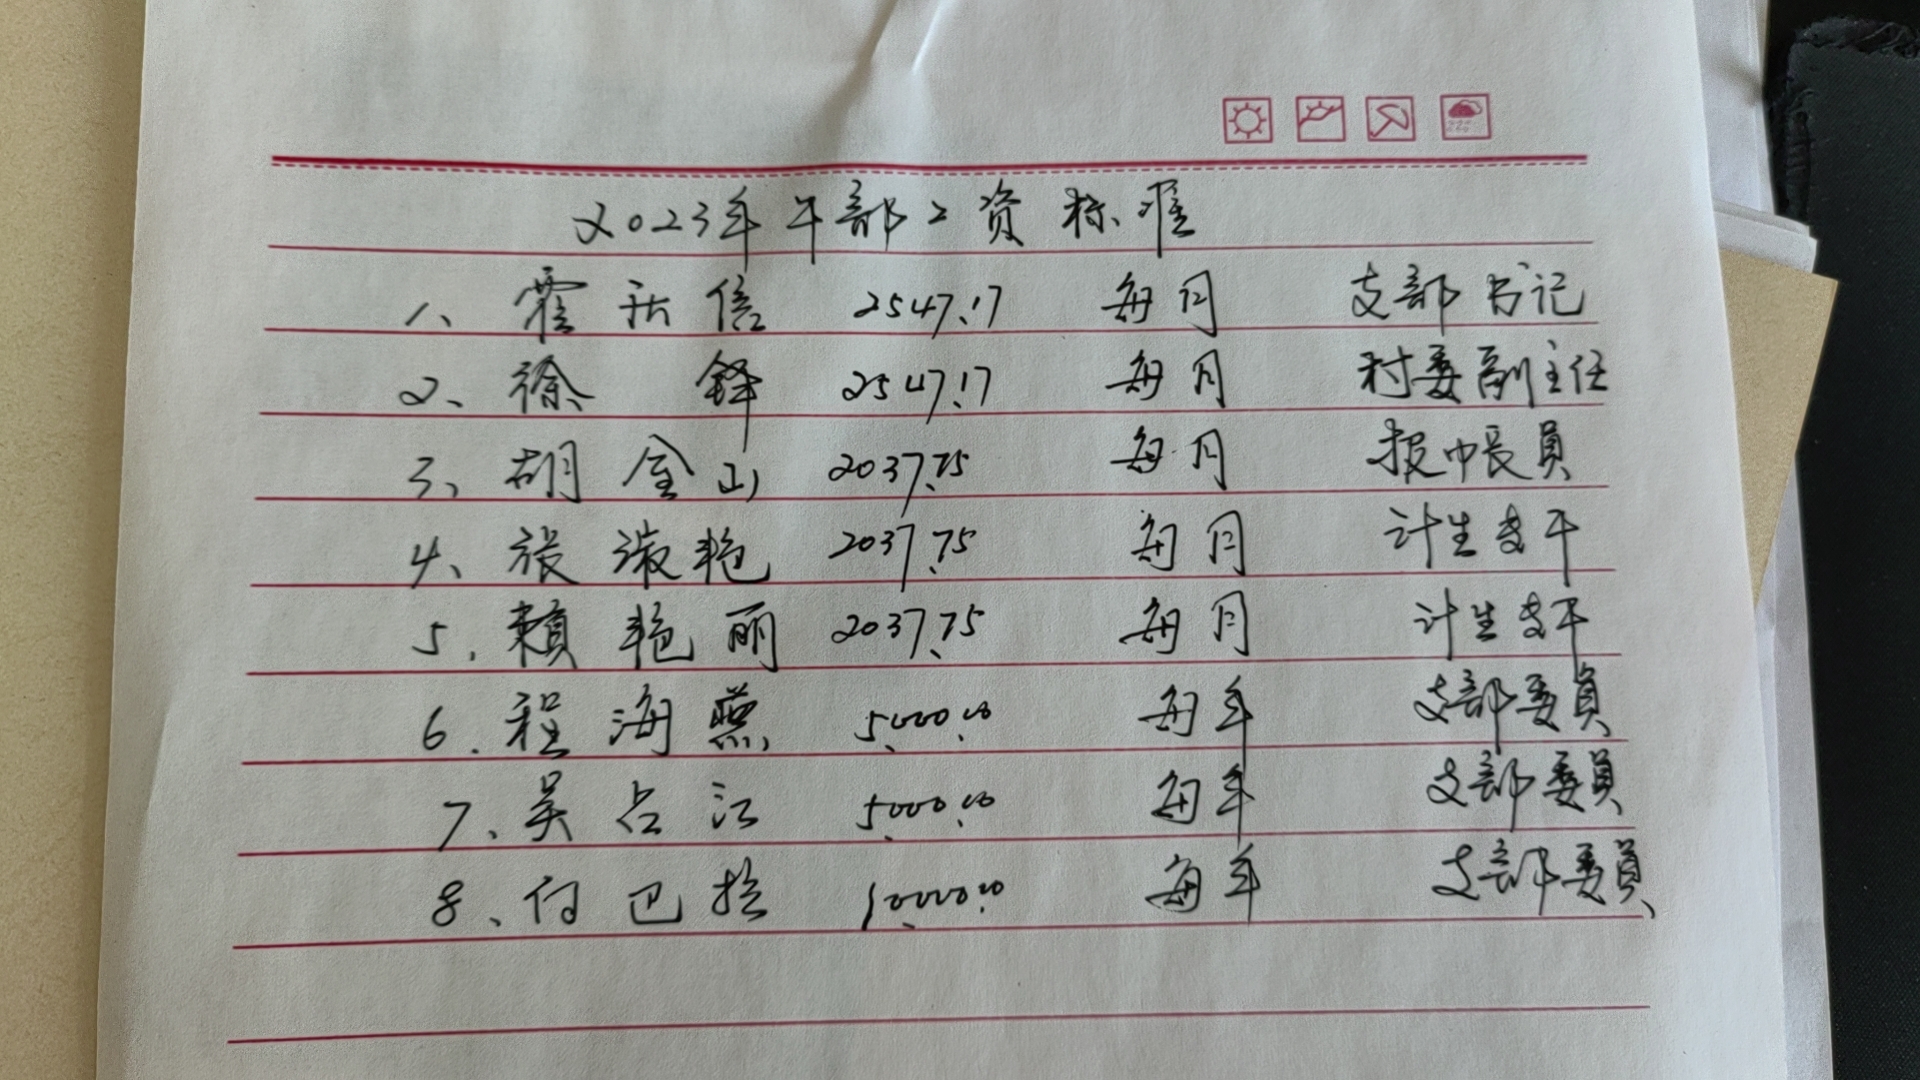 2023年干部工资标准
1、霍 信 2547.17 每月 支部书记
2、徐铎 2547.17 每月 村委副主任
3、胡金山 2037.75 每月 报账员
4、张淑艳 2037.75 每月 计生专干
5、赖艳丽 2037.75 每月 计生专干
6、程海燕 5,000.00 每年 支部委员
7、吴占江 5,000.00 每年 支部委员
8、付 10,000.00 每年 支部委员